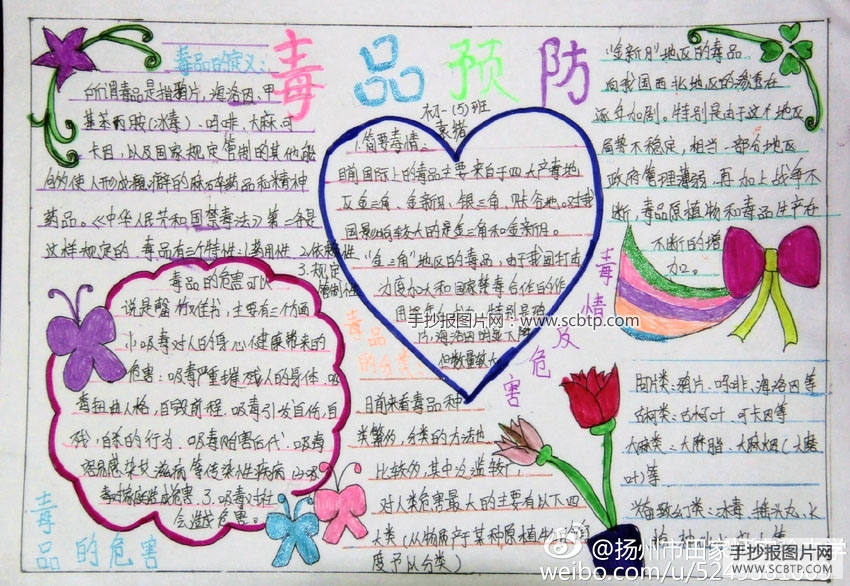 毒品预防
初一(5)班
毒品的定义:
所谓毒品是指鸦片,海洛因,甲
基苯丙胺(冰毒)、吗啡、大麻、可
卡因,以及国家规定管制的其他能
够使人形成瘾癖的麻醉药品和精神
药品。《中华人民共和国禁毒法》第二条是
这样规定的,毒品有三个特性:1.
2.依赖性
3.规定
管制性
1.简要毒情:
目前国际上的毒品主要来自于四大产毒地
区金三角、金新月、银三角、
国影响较大的是金三角和金新月。
"金三角"地区的毒品,由于我国打击
力度加大和国家禁毒合作的作
但数量较大
"金新月"地区的毒品。
向我国西北地区的渗透在
逐年加剧。特别是由于这个地区
局势不稳定,相当一部分地区
政府管理薄弱,再加上战争不
断,毒品原植物和毒品生产在
不断的增
加。
毒情及危害
毒品的危害可以
说是罄竹难书,主要有三个方面
1.吸毒对人的身心健康带来的
危害:吸毒严重摧残人的身体、吸
毒扭曲人格,自毁前程、吸毒引发自伤,自
残,自杀的行为、吸毒贻害后代、吸毒
容易感染艾滋病等传染性疾病
会造成危害。
毒品的危害
毒品的分类:
目前来看毒品种
类繁多,分类的方法也
比较多,其中为滥较广
对人类危害最大的主要有以下四
大类(从物质产于某种原植物的角
度予以分类)
鸦片、吗啡、海洛因等
古柯类:古柯叶、可卡因等
大麻类:大麻脂、大麻烟(大麻
叶)等
冰毒、摇头丸、
手抄报图片网:www.scbtp.com
手抄报图片网
WWW.SCBTP.COM
@扬州市田家
weibo.com/u/52